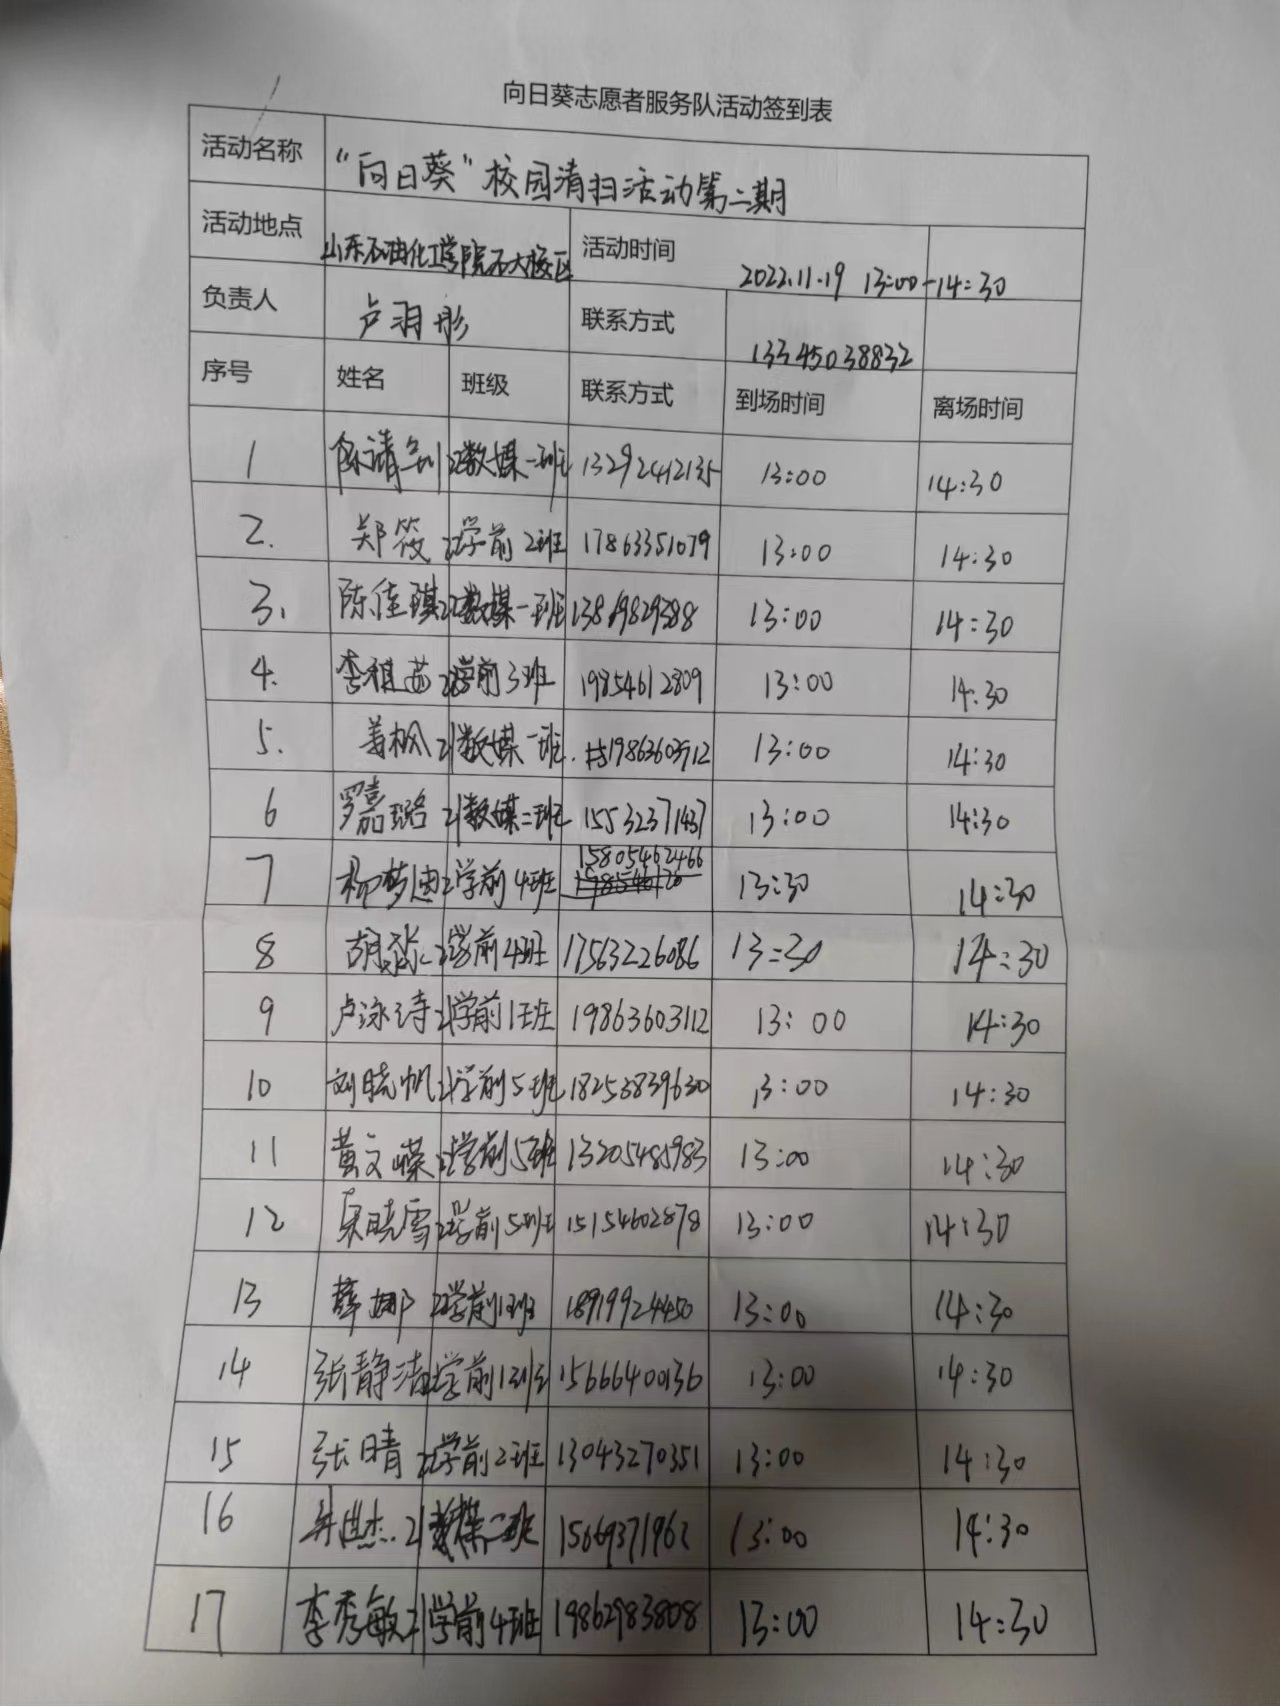 向日葵志愿者服务队活动签到表
活动名称 “向日葵”校园清扫活动第二期
活动地点 山东石油化工学院石大校区 活动时间 2022.11.19 13:00-14:30
负责人 卢羽彤 联系方式 13345038832
序号 姓名 班级 联系方式 到场时间 离场时间
1 22数媒一班 13292412135 13:00 14:30
2. 郑筱 22学前2班 17863351079 13:00 14:30
3. 陈佳琪 22数媒一班 13:00 14:30
4. 李祺茜 学前3班 19854612809 13:00 14:30
5. 姜枫 21数媒一班. 19863603912 13:00 14:30
6 罗嘉璐 21数媒二班 15532371437 13:00 14:30
7 柳梦迪 学前4班 15805462466 13:30 14:30
8 学前4班 17563226086 13:30 14:30
9 卢泳诗 21学前1班 19863603112 13:00 14:30
10 刘晓帆 21学前5班 18253839630 13:00 14:30
11 黄文嵘 学前5班 13205485983 13:00 14:30
12 晓雪 22学前5班 15154602878 13:00 14:30
13 薛娜 22学前1班 18919924450 13:00 14:30
14 张静洁 学前1班 15666400136 13:00 14:30
15 张晴 22学前2班 13043270351 13:00 14:30
16 21数媒二班 15669371962 13:00 14:30
17 李秀敏 21学前4班 19862983808 13:00 14:30